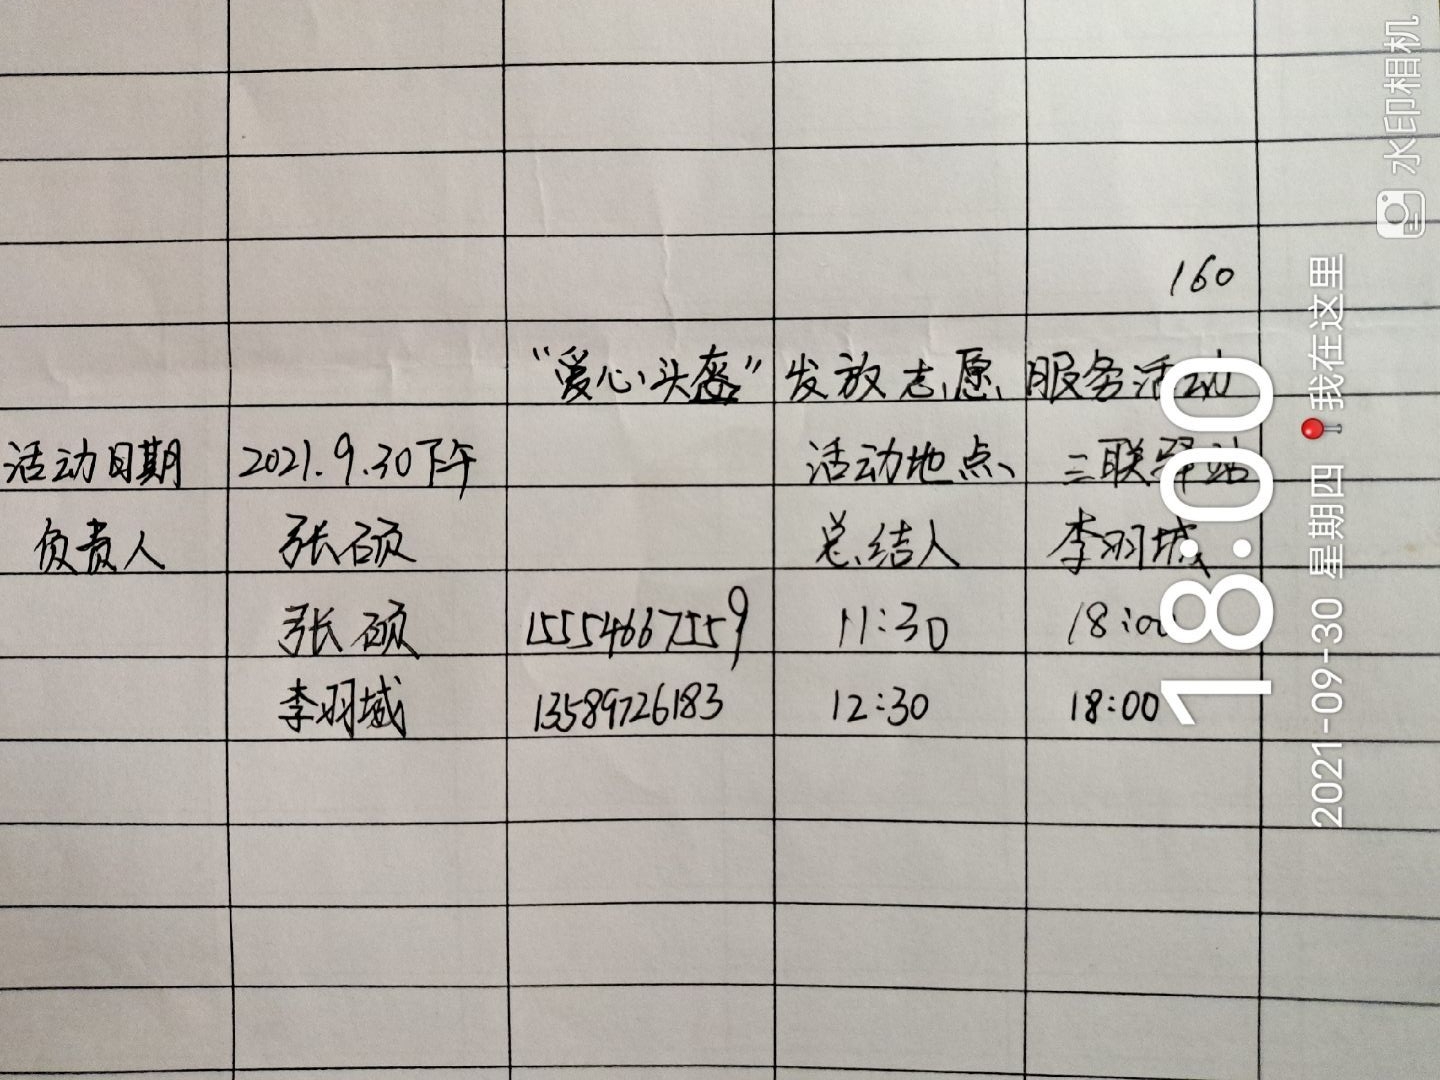 160
“爱心头盔”发放志愿服务活动
活动日期 2021.9.30下午 活动地点 三联驿站
负责人 张硕 总结人 李羽城
张硕 15554667559 11:30 18:00
李羽城 13589726183 12:30 18:00
18:00
2021-09-30 星期四 我在这里
水印相机